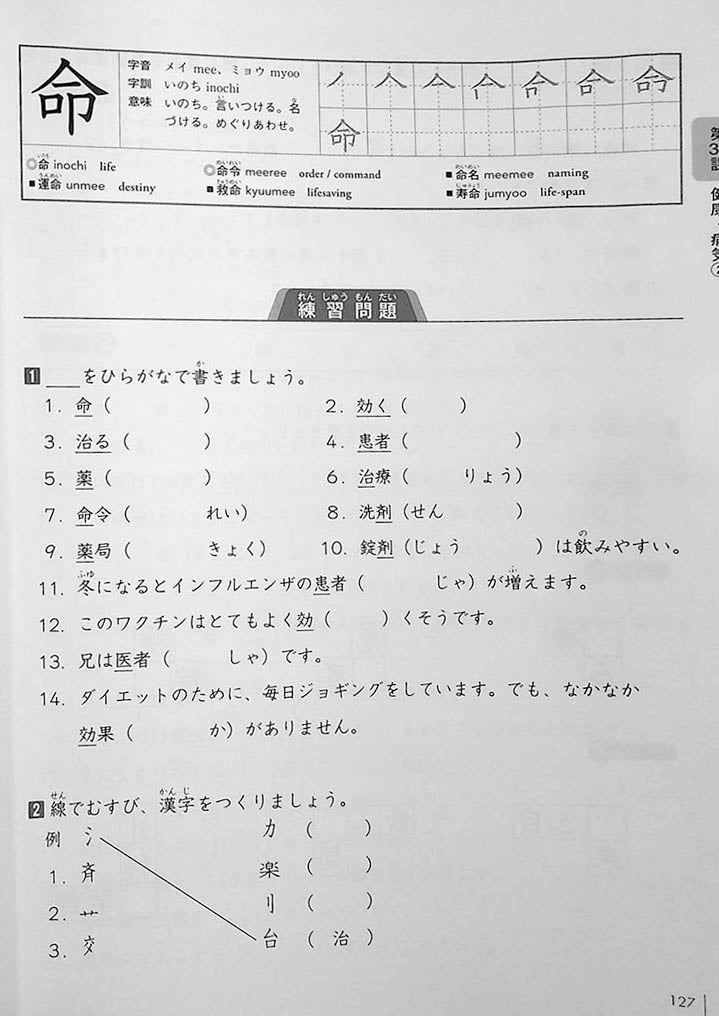 命
字音 メイ mee、ミョウ myoo
字訓 いのち inochi
意味 いのち。言いつける。名
づける。めぐりあわせ。
命
◎命 inochi life
◎命令 meeree order / command
■命名 meemee naming
■運命 unmee destiny
■救命 kyuumee lifesaving
■寿命 jumyoo life-span
第3課 健康・病気②
練習問題
1 ___をひらがなで書きましょう。
1. 命( )
2. 効く( )
3. 治る( )
4. 患者( )
5. 薬( )
6. 治療( りょう)
7. 命令( れい)
8. 洗剤(せん )
9. 薬局( きょく)
10. 錠剤(じょう )は飲みやすい。
11. 冬になるとインフルエンザの患者( じゃ)が増えます。
12. このワクチンはとてもよく効( )くそうです。
13. 兄は医者( しゃ)です。
14. ダイエットのために、毎日ジョギングをしています。でも、なかなか
効果( か)がありません。
2 線でむすび、漢字をつくりましょう。
例 氵 力 ( )
1. 斉 楽 ( )
2. 艹 刂 ( )
3. 交 台 ( 治 )
127